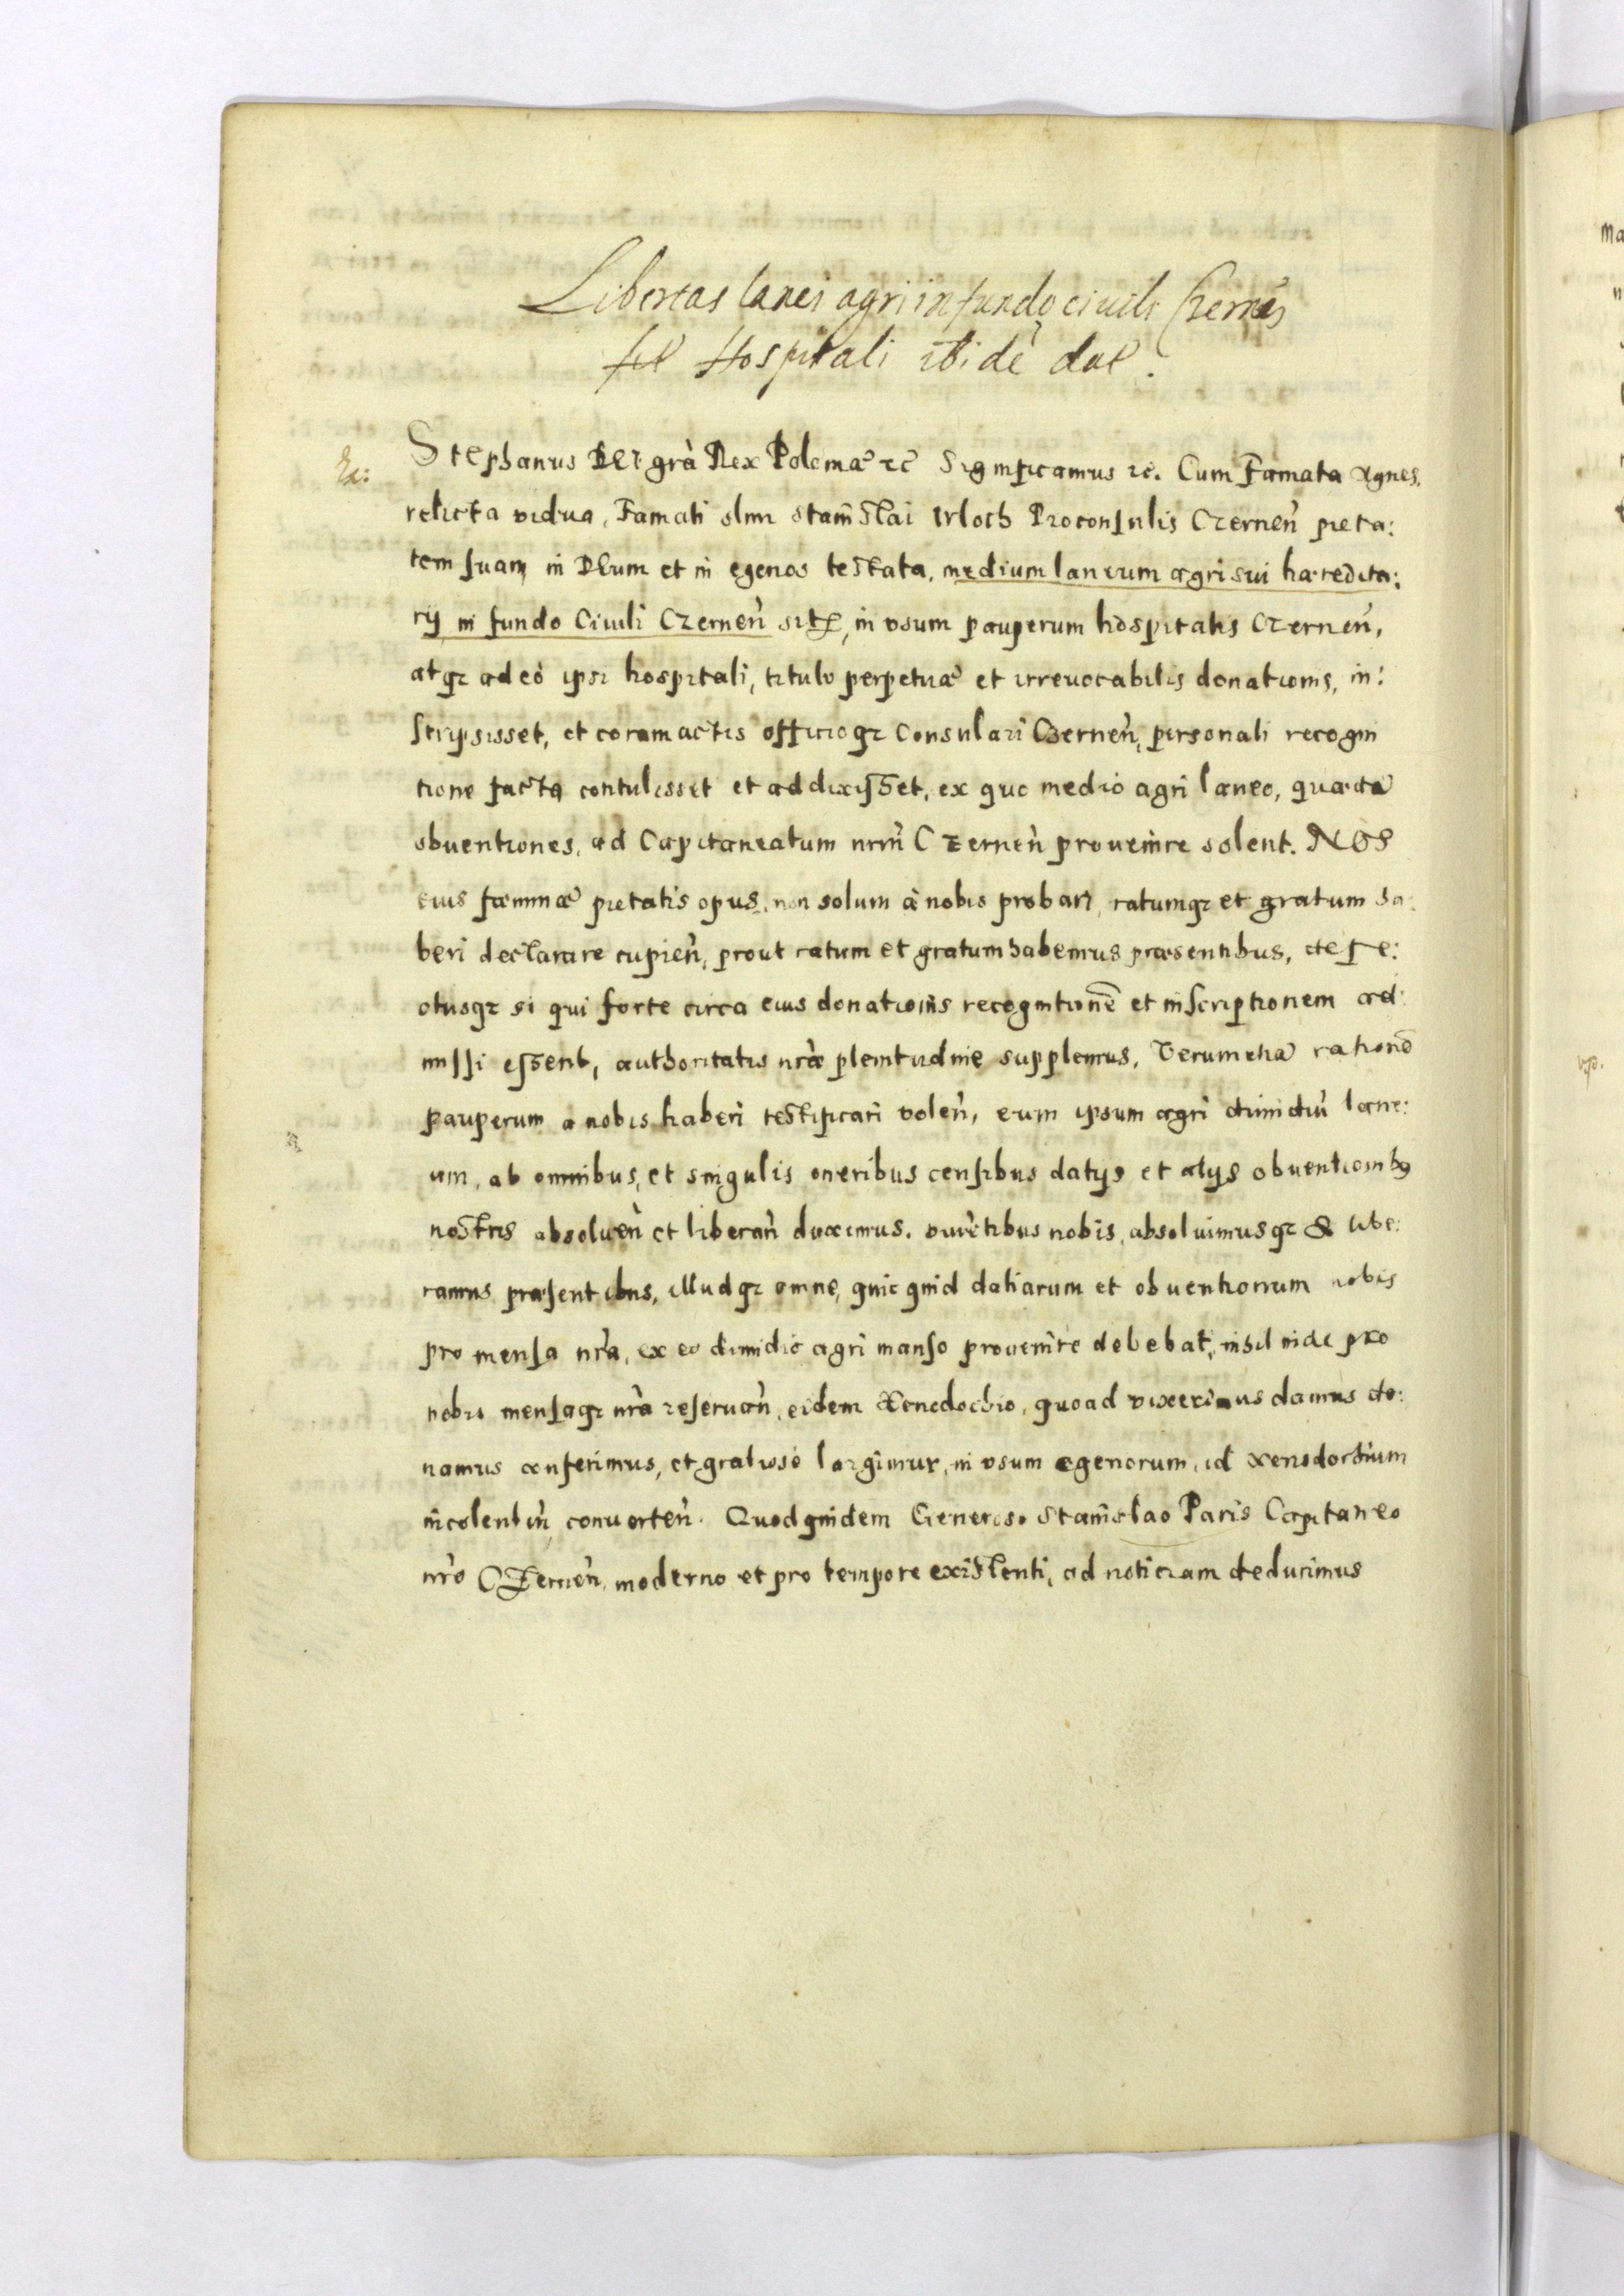 Libertas lanei agri in fundo ciuili Czerneñ
Hospitali ibidē dat.
Ex:
Stephanus DEI grà Rex Poloniæ ɾc̃ Significamus ɾc̃. Cum Famata Agnes.
relicta vidua, Famati olim Stanislai Irloch Proconsulis Czerneñ pieta:
tem suam in DEum et in egenos testata, medium laneum agri sui hæredita:
rij in fundo Ciuili Czerneñ sitū, in vsum pauperum hospitalis Czerneñ,
atqꝫ adeò ipsi hospitali, titulo perpetuæ et irreuocabilis donationis, in:
scripsisset, et coram actis officioqꝫ Consulari Czerneñ, personali recogni
tione facta contulisset et addixisset, ex quo medio agri laneo, quædã
obuentiones, ad Capitaneatum nrm̃ Czerneñ prouenire solent. NOS
eius fæminæ pietatis opus, non solum à nobis probari, ratumqꝫ et gratum ha:
beri declarare cupieñ, prout ratum et gratum habemus præsentibus, defe:
ctusqꝫ si qui forte circa eius donationis recognitionē et inscriptionem ad:
missi essent, authoritatis nræ̀ plenitudine supplemus, Verum etiã rationē
pauperum a nobis haberi testificari voleñ, eum ipsum agri dimidiũ lane:
um, ab omnibus, et singulis oneribus censibus datijs et alijs obuentionibꝰ
nostris absolueñ et liberañ duximus. viuẽtibus nobis, absoluimusqꝫ & libe:
ramus præsentibus, illudqꝫ omne, quicquid datiarum et obuentionum nobis
pro mensa nrà, ex eo dimidio agri manso prouenire debebat, nihil inde pro
nobis mensaqꝫ nrà reseruañ, eidem Xenodochio, quoad vixerimus damus do:
namus conferimus, et gratiose largimur, in vsum egenorum, id xenodochium
incolentiũ conuerteñ. Quod quidem Generoso Stanislao Paris Capitaneo
nrò Czerneñ, moderno et pro tempore existenti, ad noticiam deducimus